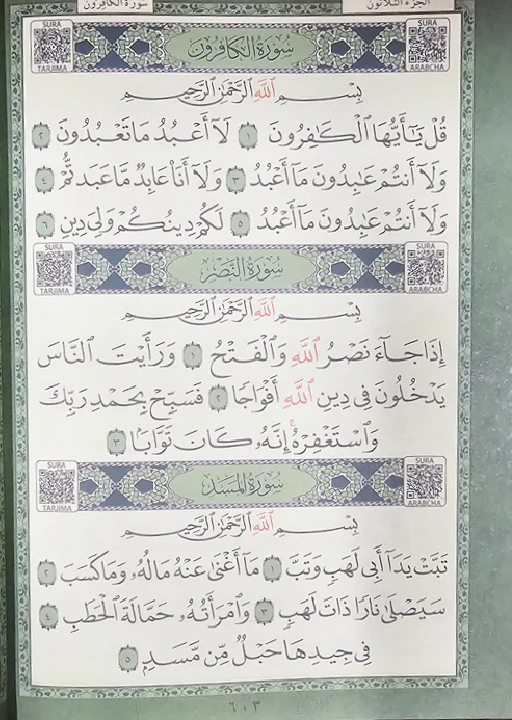 سورة الكافرون
الجزء الثلاثون
SURA
SURA
سُورَةُ الكَافِرُونَ
TARJIMA
ARABCHA
بِسْمِ اللَّهِ الرَّحْمَٰنِ الرَّحِيمِ
قُلْ يَٰٓأَيُّهَا ٱلْكَٰفِرُونَ ١ لَآ أَعْبُدُ مَا تَعْبُدُونَ ٢
وَلَآ أَنتُمْ عَٰبِدُونَ مَآ أَعْبُدُ ٣ وَلَآ أَنَا۠ عَابِدٌ مَّا عَبَدتُّمْ ٤
وَلَآ أَنتُمْ عَٰبِدُونَ مَآ أَعْبُدُ ٥ لَكُمْ دِينُكُمْ وَلِىَ دِينِ ٦
SURA
SURA
سُورَةُ النَّصْرِ
TARJIMA
ARABCHA
بِسْمِ اللَّهِ الرَّحْمَٰنِ الرَّحِيمِ
إِذَا جَآءَ نَصْرُ ٱللَّهِ وَٱلْفَتْحُ ١ وَرَأَيْتَ ٱلنَّاسَ
يَدْخُلُونَ فِى دِينِ ٱللَّهِ أَفْوَاجًا ٢ فَسَبِّحْ بِحَمْدِ رَبِّكَ
وَٱسْتَغْفِرْهُ ۚ إِنَّهُۥ كَانَ تَوَّابًۢا ٣
SURA
SURA
سُورَةُ المَسَدِ
TARJIMA
ARABCHA
بِسْمِ اللَّهِ الرَّحْمَٰنِ الرَّحِيمِ
تَبَّتْ يَدَآ أَبِى لَهَبٍ وَتَبَّ ١ مَآ أَغْنَىٰ عَنْهُ مَالُهُۥ وَمَا كَسَبَ ٢
سَيَصْلَىٰ نَارًا ذَاتَ لَهَبٍ ٣ وَٱمْرَأَتُهُۥ حَمَّالَةَ ٱلْحَطَبِ ٤
فِى جِيدِهَا حَبْلٌ مِّن مَّسَدٍۭ ٥
٦٠٣